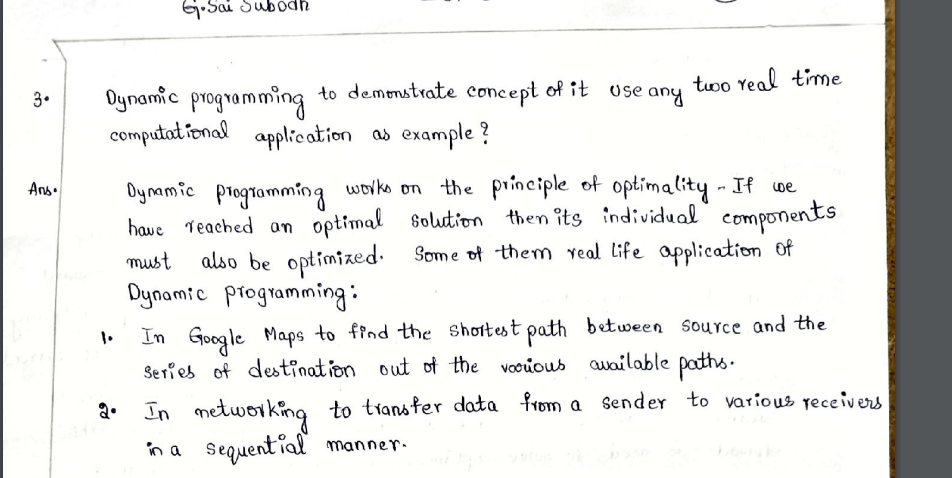 G. Sai Subodh
3. Dynamic programming to demonstrate concept of it use any two real time
computational application as example ?
Ans. Dynamic Programming works on the principle of optimality - If we
have reached an optimal solution then its individual components
must also be optimized. Some of them real life application of
Dynamic programming :
1. In Google Maps to find the shortest path between source and the
series of destination out of the various available paths.
2. In networking to transfer data from a sender to various receivers
in a sequential manner.